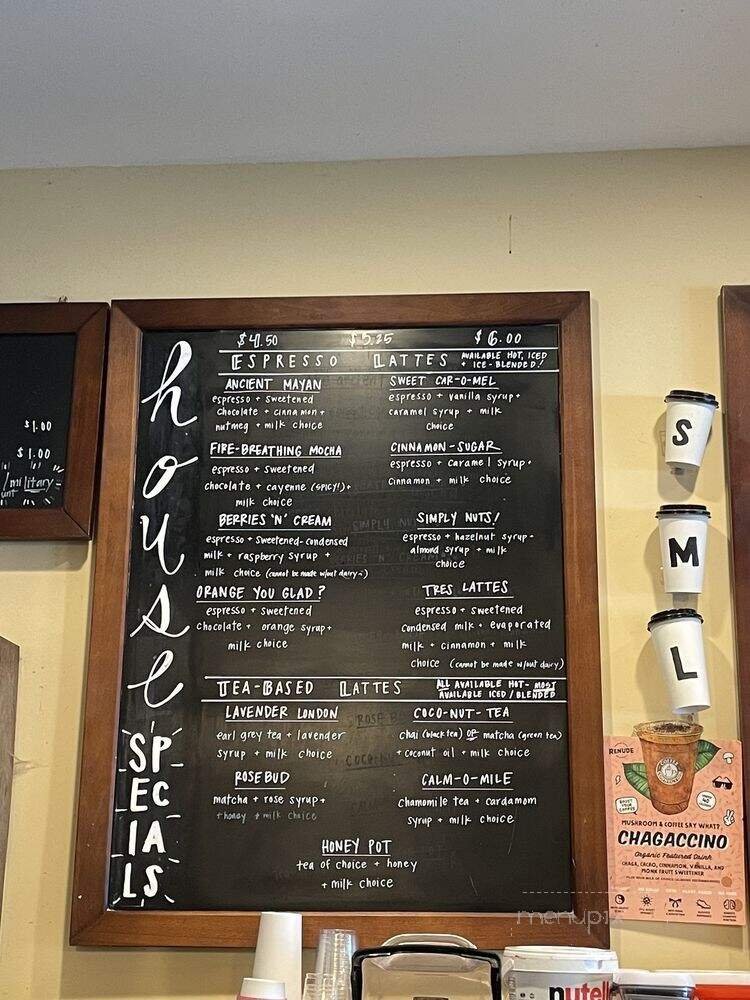 $4.50 $5.25 $6.00
ESPRESSO LATTES AVAILABLE HOT, ICED
+ ICE-BLENDED!
ANCIENT MAYAN
espresso + sweetened
chocolate + cinnamon +
nutmeg + milk choice
SWEET CAR-O-MEL
espresso + vanilla syrup +
caramel syrup + milk
choice
FIRE-BREATHING MOCHA
espresso + sweetened
chocolate + cayenne (SPICY!) +
milk choice
CINNAMON-SUGAR
espresso + caramel syrup +
cinnamon + milk choice
BERRIES 'N' CREAM
espresso + sweetened-condensed
milk + raspberry syrup +
milk choice (cannot be made w/out dairy)
SIMPLY NUTS!
espresso + hazelnut syrup +
almond syrup + milk
choice
ORANGE YOU GLAD?
espresso + sweetened
chocolate + orange syrup +
milk choice
TRES LATTES
espresso + sweetened
condensed milk + evaporated
milk + cinnamon + milk
choice (cannot be made w/out dairy)
TEA-BASED LATTES ALL AVAILABLE HOT- MOST
AVAILABLE ICED/BLENDED
LAVENDER LONDON
earl grey tea + lavender
syrup + milk choice
COCO-NUT-TEA
chai (black tea) OR matcha (green tea)
+ coconut oil + milk choice
ROSEBUD
matcha + rose syrup +
+ honey + milk choice
CALM-O-MILE
chamomile tea + cardamom
syrup + milk choice
HONEY POT
tea of choice + honey
+ milk choice
house
SPECIALS
$1.00
$1.00
/military
S
M
L
RENUDE
MUSHROOM & COFFEE SAY WHAT?
CHAGACCINO
Organic Featured Drink
CHAGA, CACAO, CINNAMON, VANILLA, AND
MONK FRUIT SWEETENER
nutell
menupix